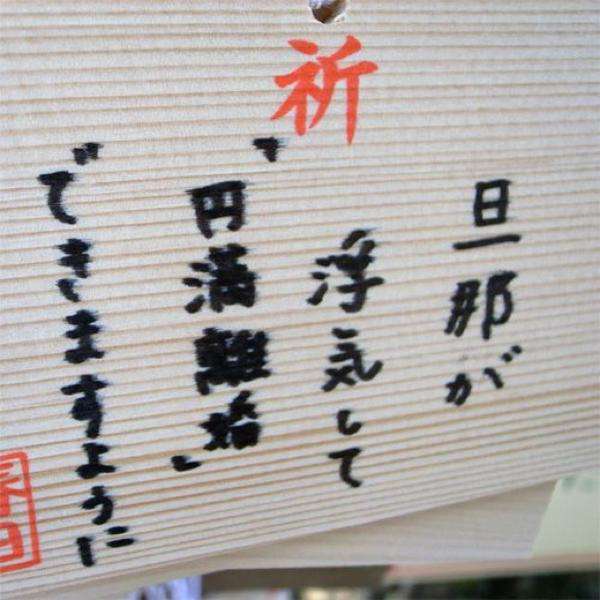 祈
旦那が
浮気して
「円満離婚」
できますように